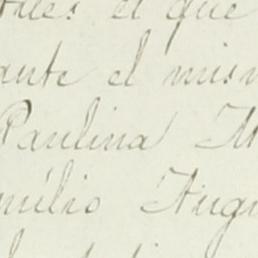 el que
ante el mism
Paulina M
milio Augu